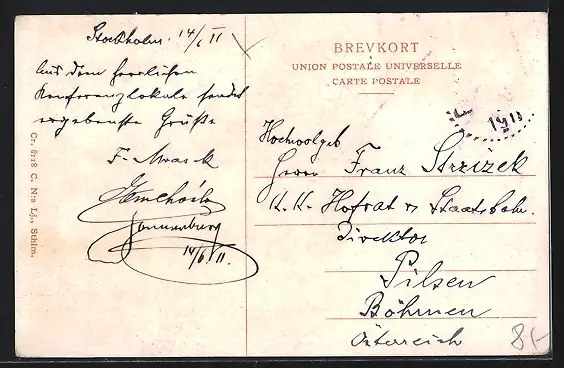 Stockholm. 14/6 11
Aus dem herrlichen
Konferenzlokale sendet
ergebenste Grüße
F. Mrasek
Sonnenburg
14/6 11.
Cr. 8218 C. N:s Lj., Sthlm.
BREVKORT
UNION POSTALE UNIVERSELLE
CARTE POSTALE
1911
Hochwolgeb
Herrn Franz Strzizek
K. K. Hofrat & Staatsbahn.
Direktor
Pilsen
Böhmen
Österreich
8/-